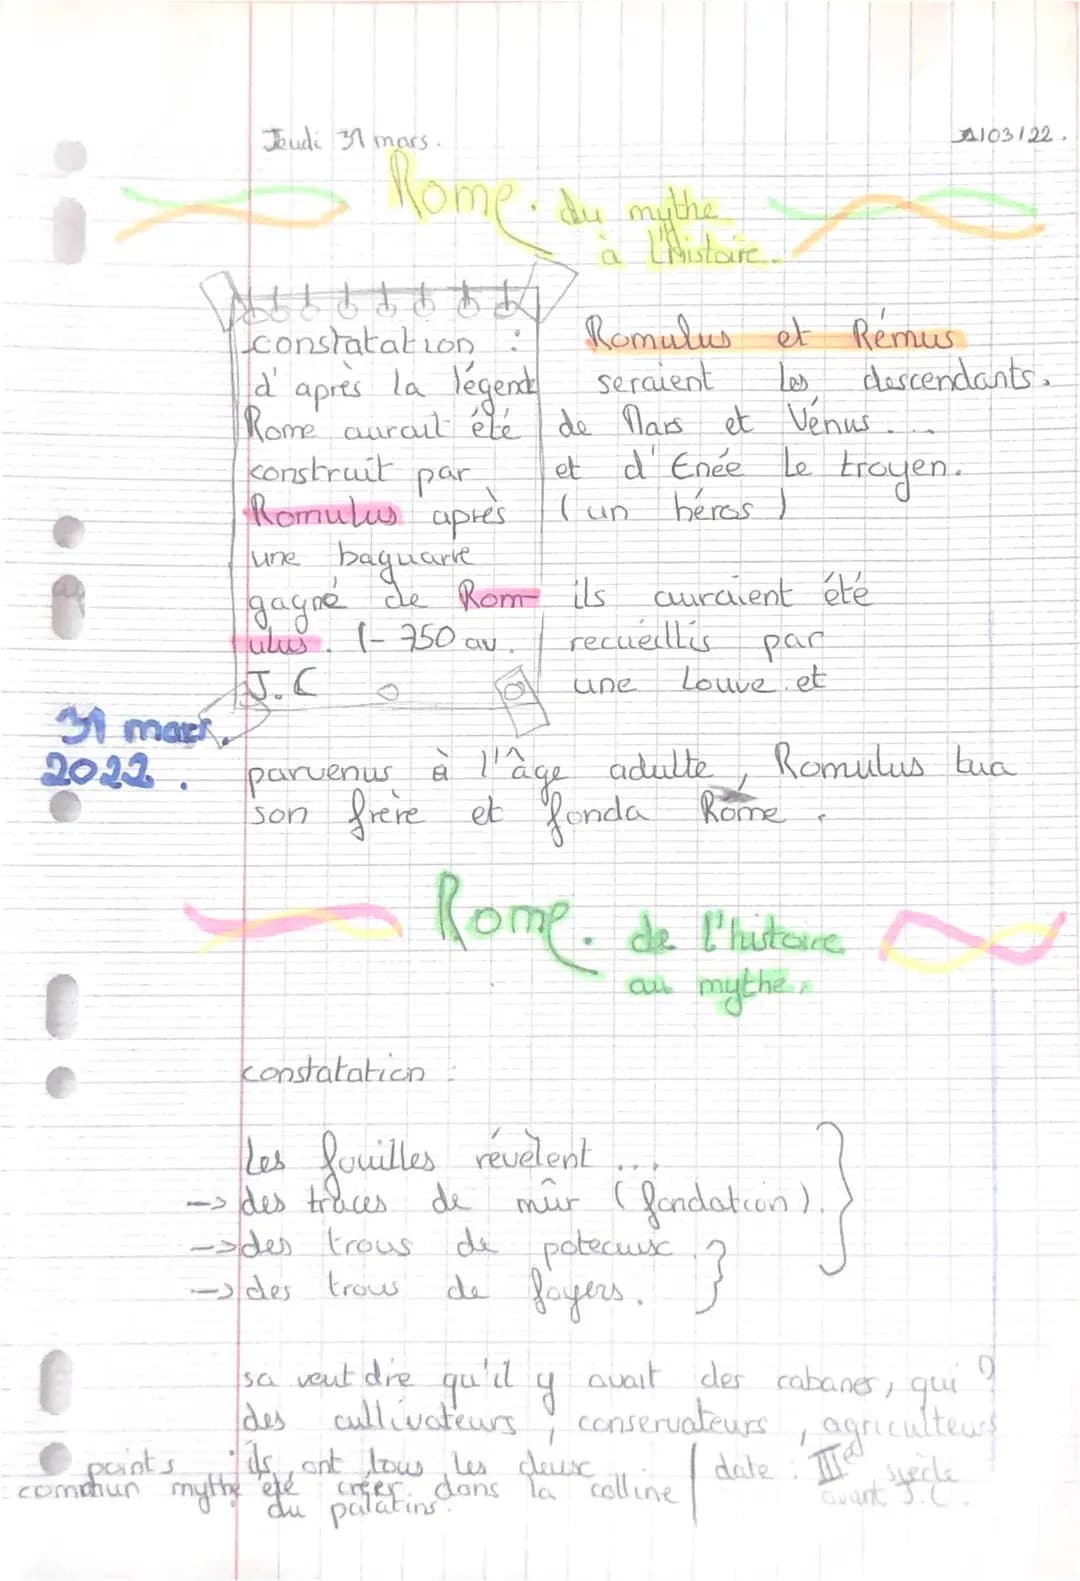 Jeudi 31 mars.
31/03/22.
Rome. du mythe
à l'Histoire.
constatation :
d'après la légende
Rome aurait été
construit par
Romulus après
une baguarre
gagné de Rom-
ulus. (-750 av.
J.C
Romulus et Rémus
seraient les descendants.
de Mars et Vénus...
et d'Enée le troyen.
(un héros)
ils auraient été
recueillis par
une Louve et
31 mars.
2022.
parvenus à l'âge adulte, Romulus tua
son frère et fonda Rome.
Rome. de l'histoire
au mythe.
constatation :
Les fouilles révèlent ...
-> des traces de mûr (fondation).
-> des trous de poteaux
-> des trous de foyers.
sa veut dire qu'il y avait des cabanes, qui ?
des cultivateurs, conservateurs, agriculteurs
points : ils ont tous les deux
commun mythe été créer dans la colline
du palatins.
date : IIIe siècle
avant J.C.